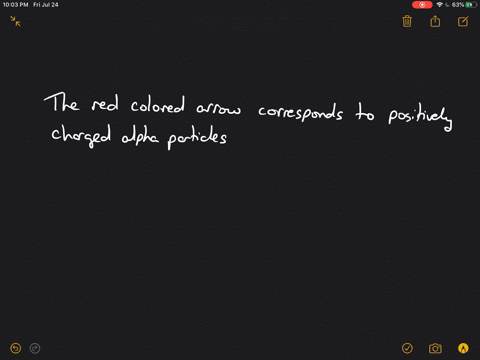 10:03 PM Fri Jul 24 63%
The red colored arrow corresponds to positively
charged alpha particles